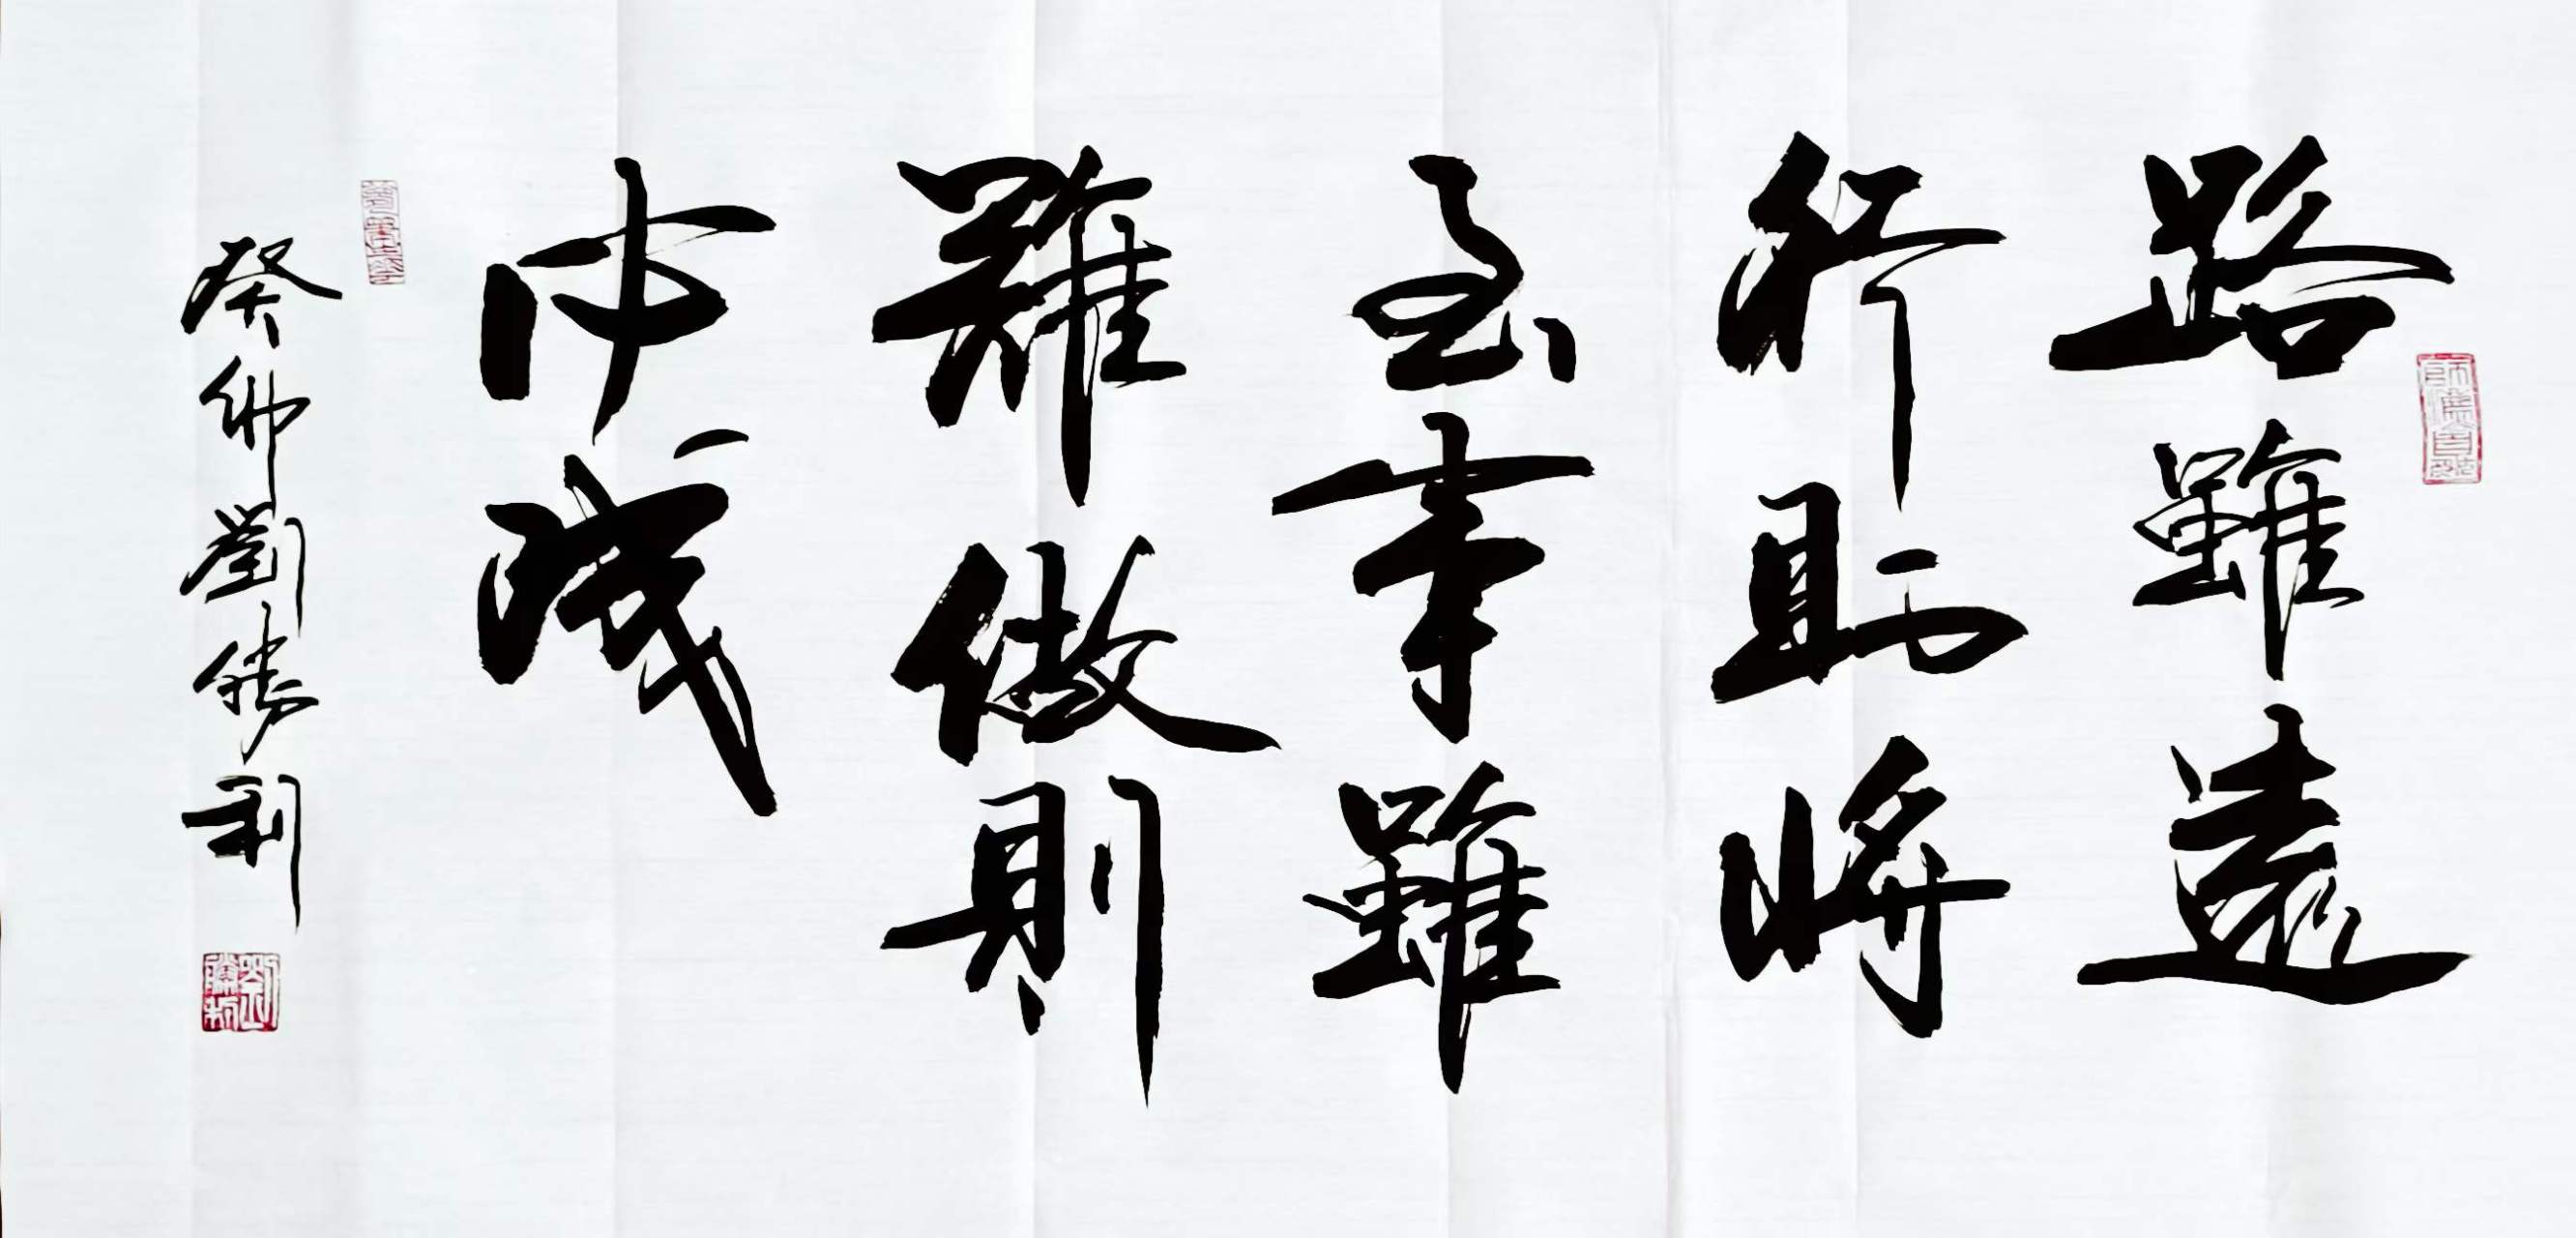 路雖遠
行則將
至事雖
難做則
必成
癸卯劉勝利
劉勝利